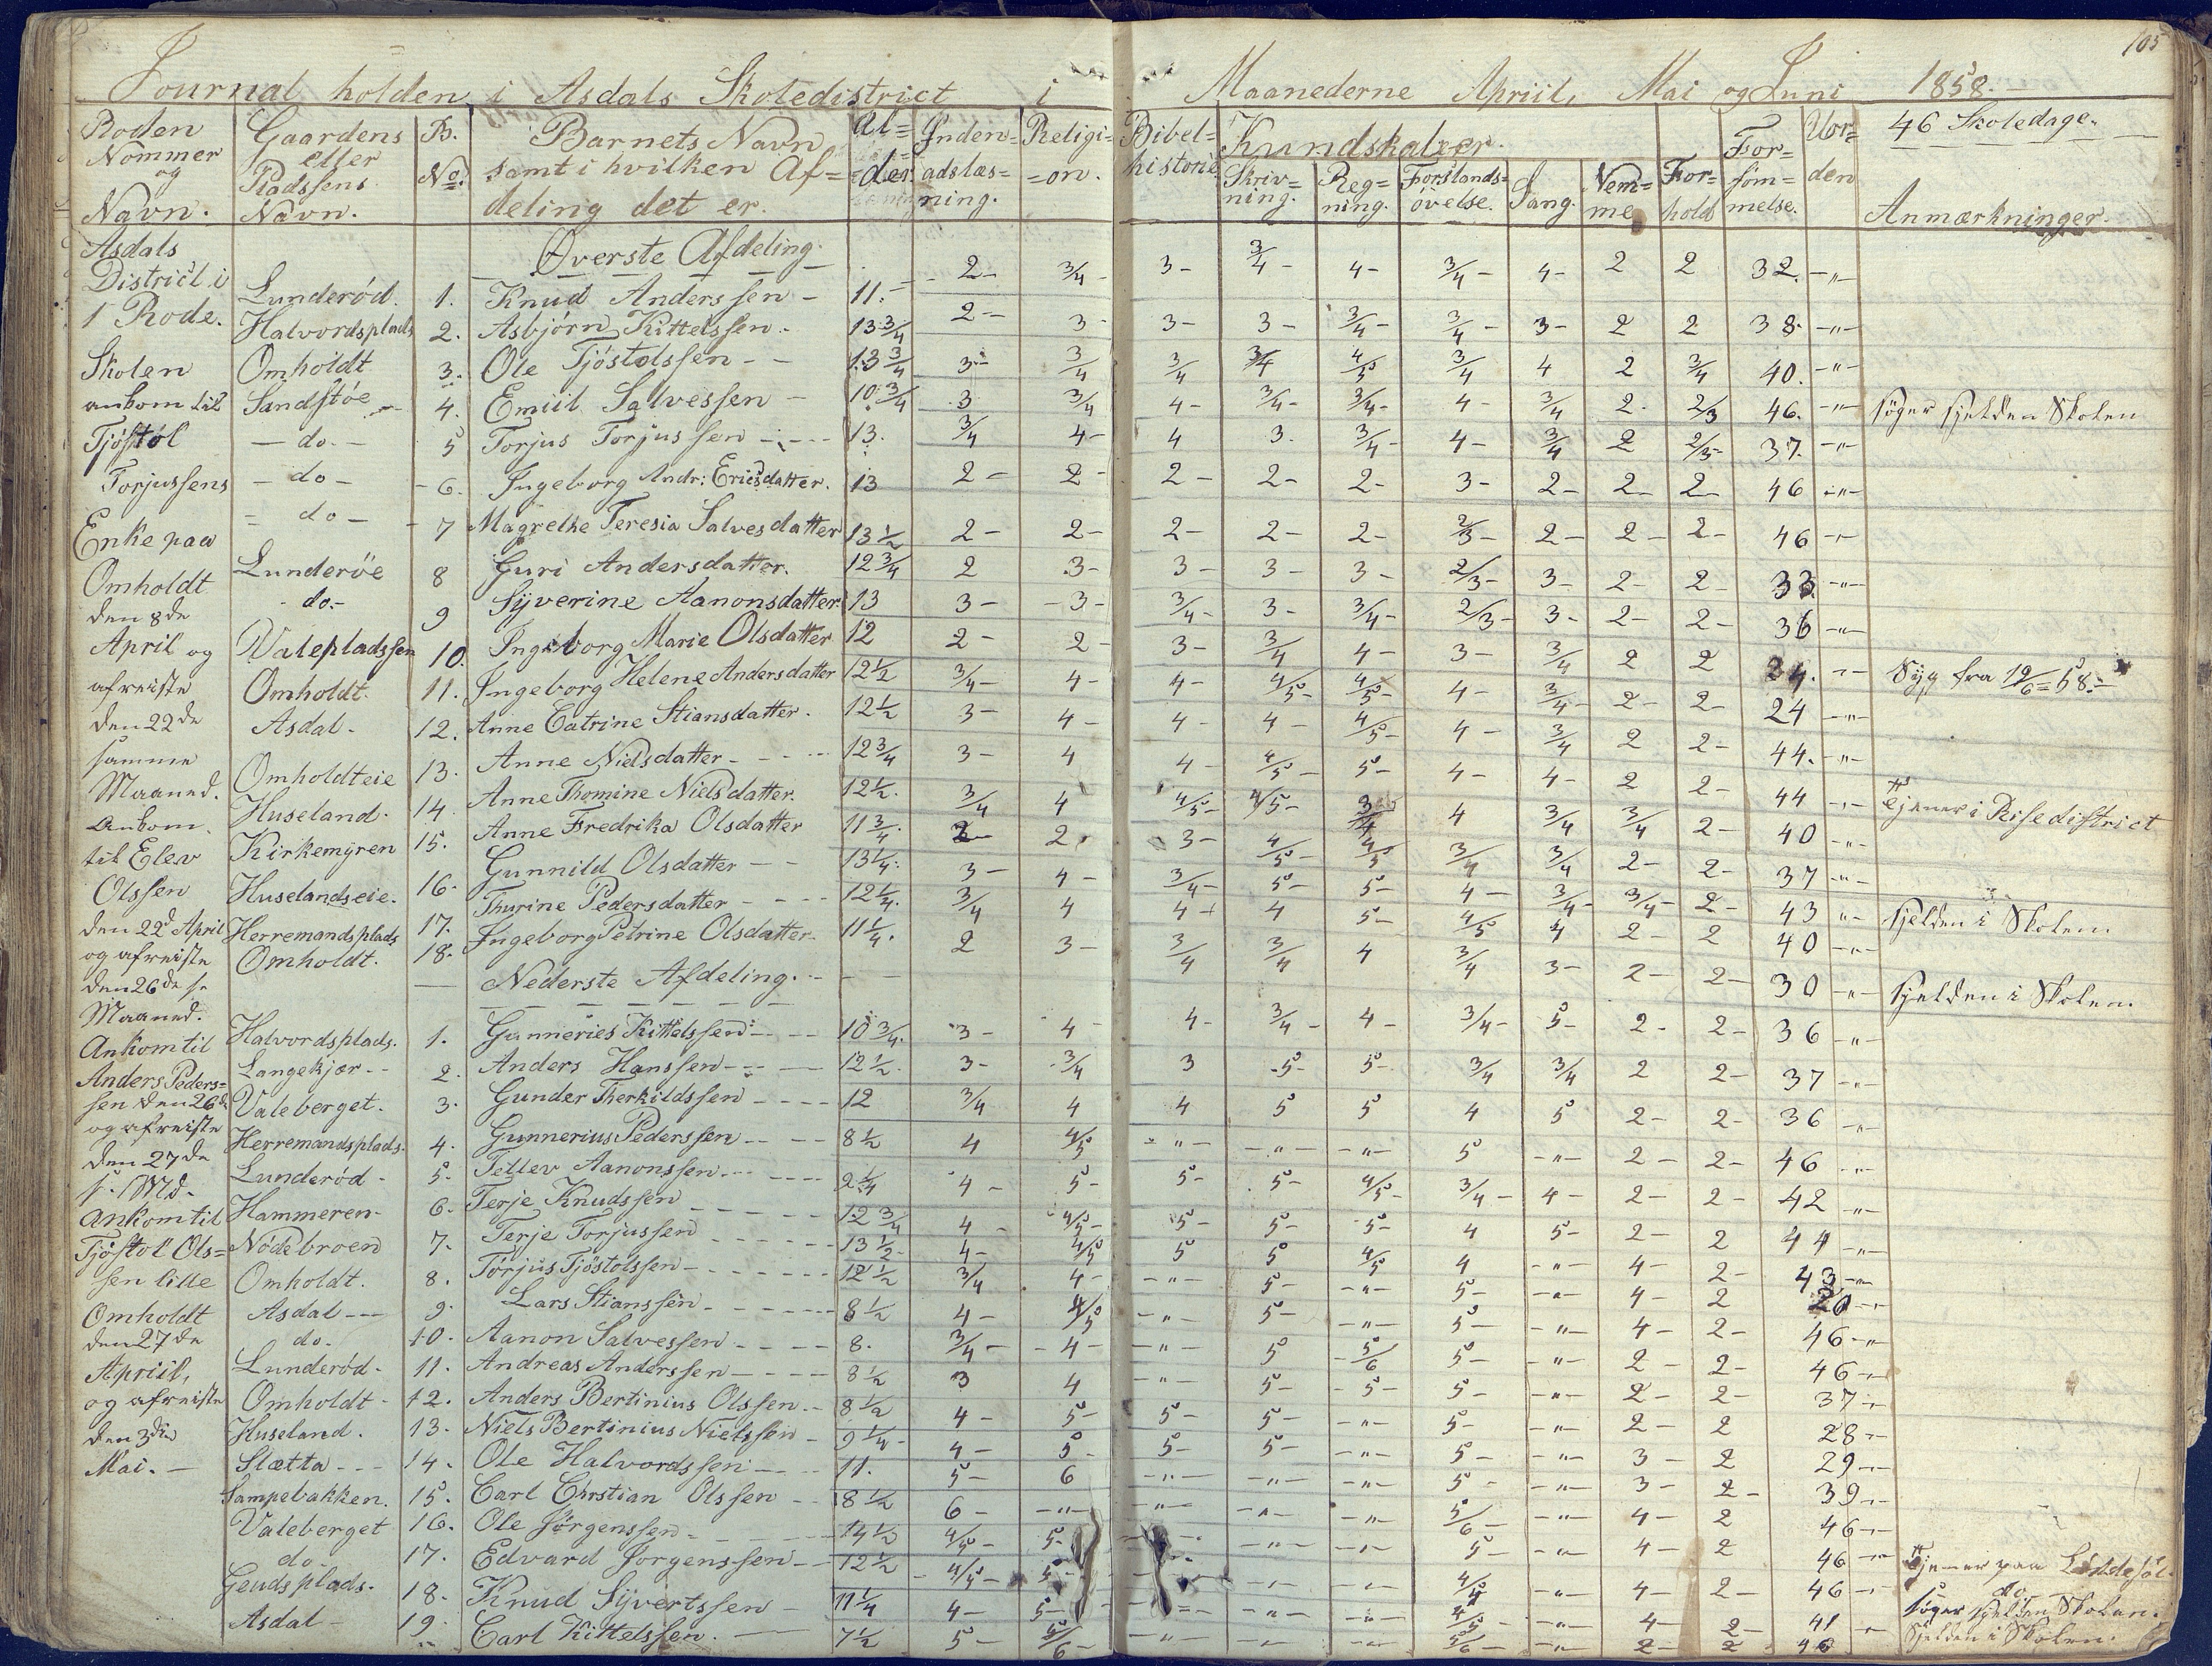 105
Journal holden i Asdals Skoledistrict i Maanederne Apriil, Mai og Juni 1858.
Roden Nommer og Navn. Gaardens eller Pladssens Navn. B. No. Barnets Navn samt i hvilken Afdeling det er. Alder Indenadslæsning. Religion. Bibelhistorie Kundskaber. Skrivning. Regning. Forstandsøvelse. Sang. Nemme Forhold Forsømmelse. Uorden 46 Skoledage. Anmærkninger.
Asdals
District i
1 Rode.
Skolen
ankom til
Tjøstøl
Torjussens
Enke paa
Omholdt
den 8de
April og
afreiste
den 22de
samme
Maaned.
Ankom
til Elev
Olssen
den 22d April
og afreiste
den 26de s.
Maaned.
Ankom til
Anders Peders=
sen den 26de
og afreiste
den 27de
s. Md.
Ankom til
Tjøstol Ols=
sen lille
Omholdt
den 27de
Apriil,
og afreiste
den 3die
Mai. —
Øverste Afdeling.
Lunderød. 1. Knud Anderssen 11. 2 3/4 3 3/4 4 3/4 4 2 2 32. "
Halvordsplads 2. Asbjørn Kittelssen 13 3/4 2 3 3 3 3/4 3/4 3 2 2 38. "
Omholdt 3. Ole Tjöstolssen 13 3/4 3 3/4 3/4 3/4 4/5 3/4 4 2 3/4 40. "
Sandstøe 4. Emiil Salvessen 10 3/4 3 3/4 4 3/4 3/4 4 3/4 2 2/3 46. " søger sjelden Skolen
do. 5 Torjus Torjussen 13. 3/4 4 4 3. 3/4 4 3/4 2 2/3 37. "
do 6. Ingeborg Andr: Ericsdatter. 13 2 2 2 2 2 3 2 2 2 46 "
do 7 Magrethe Teresia Salvesdatter 13 1/2 2 2 2 2 2 2/3 2 2 2 46 "
Lunderöe 8 Guri Andersdatter. 12 3/4 2 3 3 3 3 2/3 3 2 2 33 "
do. 9 Syverine Aanonsdatter 13 3 3 3/4 3 3/4 2/3 3 2 2 36 "
Valepladssen 10. Ingeborg Marie Olsdatter 12 2 2 3 3/4 4 3 3/4 2 2 34. " Syg fra
Omholdt. 11. Ingeborg Helene Andersdatter 12 1/2 3/4 4 4 4/5 4/5 4 3/4 2 2 24 "
Asdal. 12. Anne Catrine Stiansdatter. 12 1/2 3 4 4 4 4/5 4 3/4 2 2 44. "
Omholdteie 13. Anne Nielsdatter 12 3/4 3 4 4 4/5 5 4 4 2 2 44 " Tjener i Risedistrict
Huseland. 14 Anne Thomine Nielsdatter. 12 1/2. 3/4 4 4/5 4/5 3/4 4 3/4 3/4 2 40 "
Kirkemyren 15. Anne Fredrika Olsdatter 11 3/4. 2 2 3 4/5 4/5 3/4 3/4 2 2 37 "
Huselandseie. 16. Gunnild Olsdatter 13 1/4. 3 4 3/4 5 5 4 3/4 3/4 2 43 " sjelden i Skolen
Herremandsplads 17. Thurine Pedersdatter 12 1/4. 3/4 4 4 4 5 4/5 4 2 2 40 "
Omholdt. 18. Ingeborg Petrine Olsdatter 11 1/4. 2 3 3/4 3/4 4 3/4 3 2 2 30 " sjelden i Skolen.
Nederste Afdeling.
Halvordsplads. 1. Gunneries Kittelssen 10 3/4. 3 4 4 3/4 4 3/4 5 2 2 36 "
Langekjær 2. Anders Hanssen 12 1/2. 3 3/4 3 5 5 3/4 3/4 2 2 37 "
Valeberget. 3. Gunder Therkildssen 12 3/4 4 4 5 5 4 5 2 2 36 "
Herremandsplads. 4. Gunnerius Pederssen 8 1/2 4 4/5 " " " 5 " 2 2 46 "
Lunderød 5. Tellev Aanonssen 9 1/4 4 5 5 5 4/5 3/4 4 2 2 42 "
Hammeren 6. Terje Knudssen 12 3/4 4 4/5 5 5 5 4 5 2 2 44 "
Nödebroen 7. Terje Torjussen 13 1/2 4 4/5 5 5 4/5 4 " 4 2 43 "
Omholdt. 8. Torjus Tjöstolssen 12 1/2 3/4 4 " 5 " 5 " 4 2 20 "
Asdal 9. Lars Stianssen 8 1/2 4 4/5 " 5 " 5 " 4 2 46 "
do. 10. Aanon Salvessen 8. 3/4 4 " 5 5/6 5 " 2 2 46 "
Lunderød 11. Andreas Anderssen 8 1/2 3 4 " 5 5 5 " 2 2 37 "
Omholdt 12. Anders Bertinius Olssen 8 1/2 4 5 5 5 " 5 " 2 2 28 "
Huseland. 13. Niels Bertinius Nielssen 9 1/4 4 5 5 5 " 5 " 3 2 29 "
Slætta 14. Ole Halvordssen 11. 5 6 " " " 5 " 3 2 39 "
Lampebakken. 15. Carl Chrstian Olssen 8 1/2 6 " " " " 5/6 " 4 2 46 "
Valeberget 16. Ole Jörgenssen 14 1/2 4/5 5 " " " 5 " 4 2 46 " Tjener paa
do 17. Edvard Jorgenssen 12 1/2 4/5 5 " " " 4/5 " 4 2 46 " do
Geudsplads. 18. Knud Syvertssen 11 1/4 4 5 " " " 4/5 " 4 2 41 " søger sjelden Skolen.
Asdal 19. Carl Kittelssen. 7 1/2 5 5/6 " " " 5/6 " 2 2 40 Sjelden i Skolen.